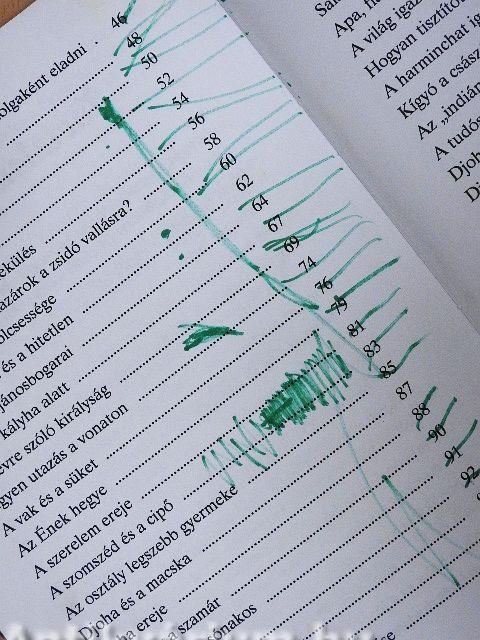 olgaként eladni . 46
48
50
52
54
56
58
60
62
64
67
69
74
76
79
81
83
85
87
88
90
91
92
ekülés
azárok a zsidó vallásra?
ölcsessége
és a hitetlen
jánosbogarai
kályha alatt
evre szóló királyság
gyen utazás a vonaton
A vak és a süket
Az Ének hegye
A szerelem ereje
A szomszéd és a cipő
Az osztály legszebb gyermeke
Djoha és a macska
ha ereje
a szamár
ónakos
Apa,
A világ igaz
Hogyan tisztíto
A harminchat ig
Kígyó a csász
Az „indián
A tudós
Djoh